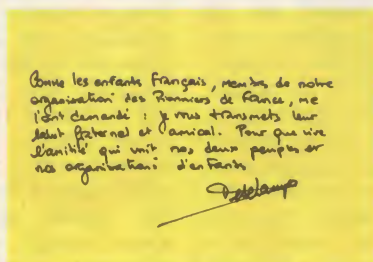 Comme les enfants français, membres de notre
organisation des Pionniers de France, me
l'ont demandé : je vous transmets leur
salut fraternel et amical. Pour que vive
l'amitié qui unit nos deux peuples et
nos organisations d'enfants